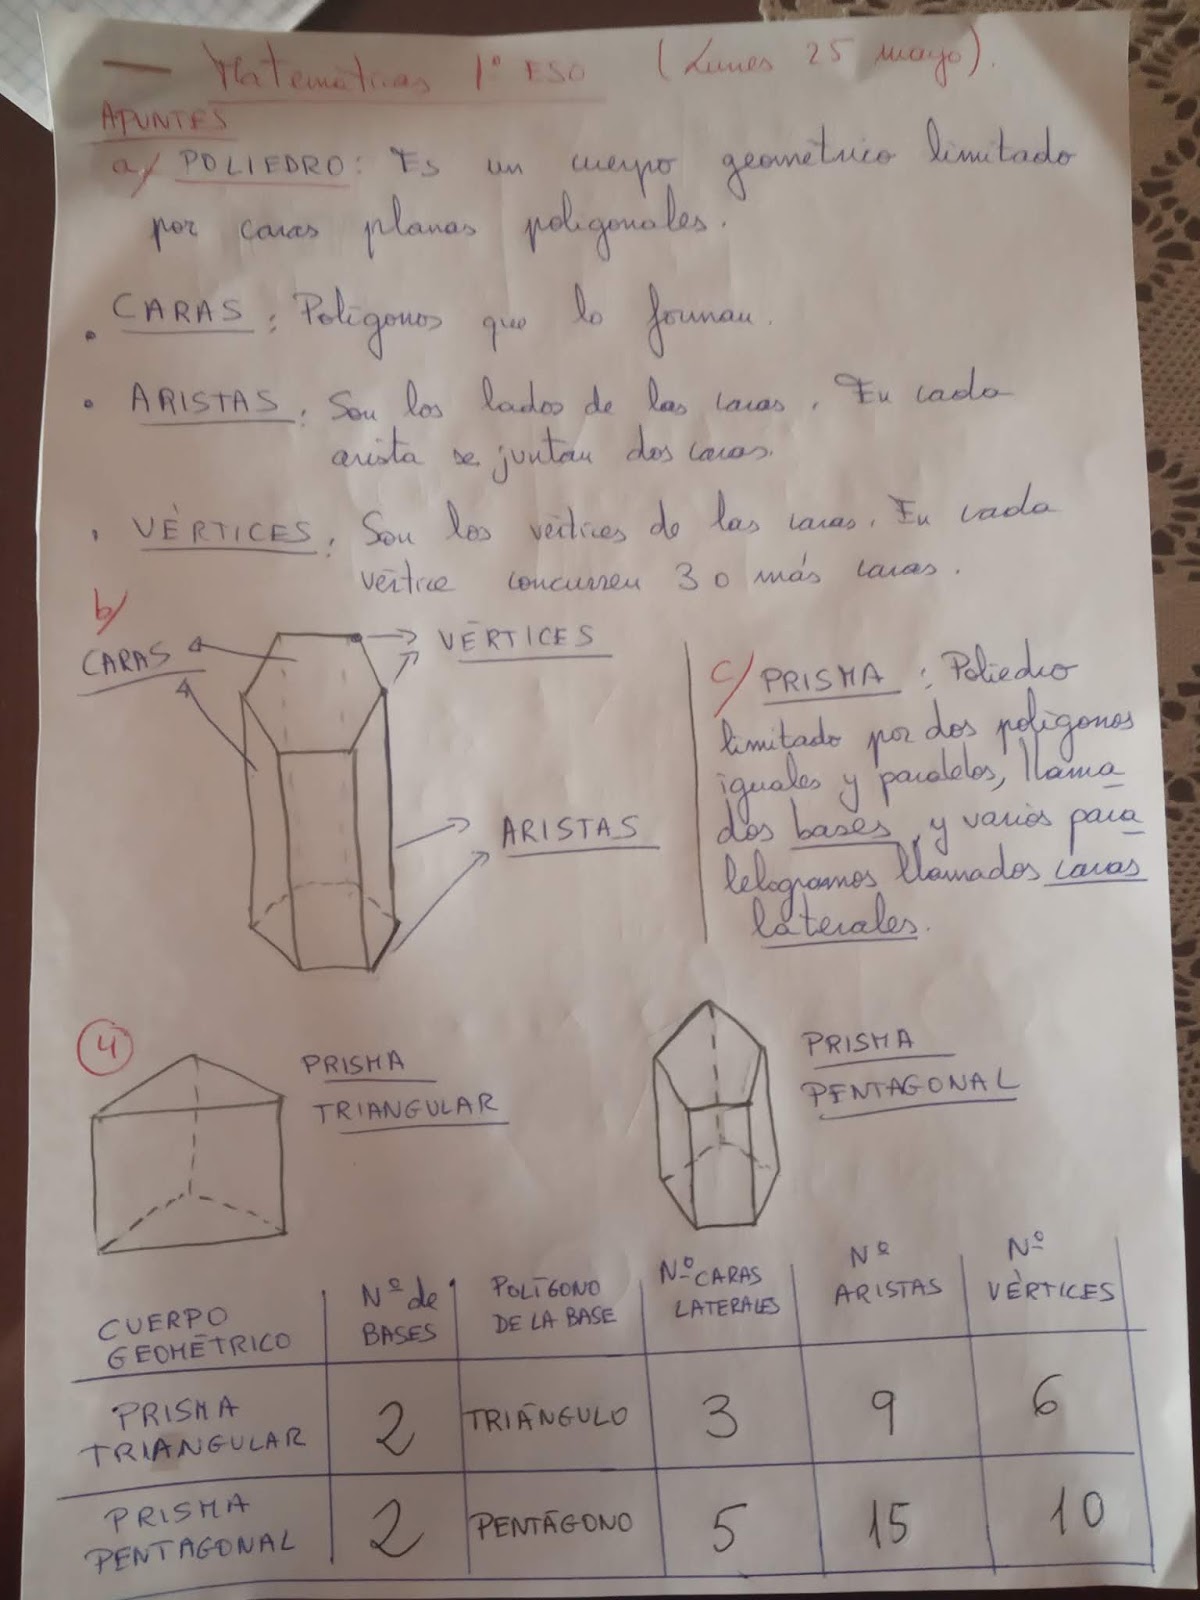 — Matemáticas 1º ESO (Lunes 25 mayo).
APUNTES
a/ POLIEDRO: Es un cuerpo geométrico limitado
por caras planas poligonales.
• CARAS: Polígonos que lo forman.
• ARISTAS: Son los lados de las caras. En cada
arista se juntan dos caras.
• VÉRTICES: Son los vértices de las caras. En cada
vértice concurren 3 o más caras.
b/
CARAS
VÉRTICES
ARISTAS
c/ PRISMA: Poliedro
limitado por dos polígonos
iguales y paralelos, llama
dos bases, y varios para
lelogramos llamados caras
laterales.
4
PRISMA
TRIANGULAR
PRISMA
PENTAGONAL
CUERPO
GEOMÉTRICO
Nº de
BASES
POLÍGONO
DE LA BASE
Nº CARAS
LATERALES
Nº
ARISTAS
Nº
VÈRTICES
PRISMA
TRIANGULAR
2
TRIÁNGULO
3
9
6
PRISMA
PENTAGONAL
2
PENTÁGONO
5
15
10